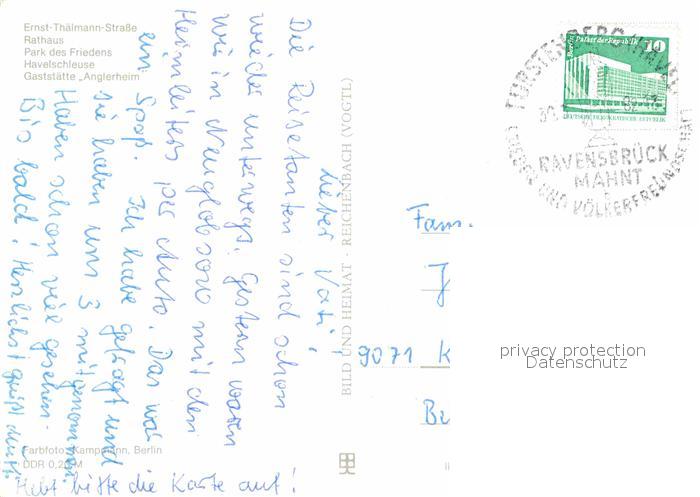 Ernst-Thälmann-Straße
Rathaus
Park des Friedens
Havelschleuse
Gaststätte „Anglerheim"
Lieber Vati!
Die Reisetanten sind schon
wieder unterwegs. Gestern waren
wir in Neuglobsow mit den
Heimleiters per Auto. Das war
ein Spaß. Ich habe gefragt und
sie haben uns 3 mitgenommen
Haben schon viel gesehen.
Bis bald! Herzlichst grüßt
Hebt bitte die Karte auf!
Farbfoto: Kampmann, Berlin
DDR 0,20 M
BILD UND HEIMAT · REICHENBACH (VOGTL)
Fam.
J
9071 K
Be
Berlin, Palast der Republik 10
DEUTSCHE DEMOKRATISCHE REPUBLIK
FÜRSTENBERG (HAVEL)
RAVENSBRÜCK
MAHNT
FRIEDE UND VÖLKERFREUNDSCHAFT
privacy protection
Datenschutz